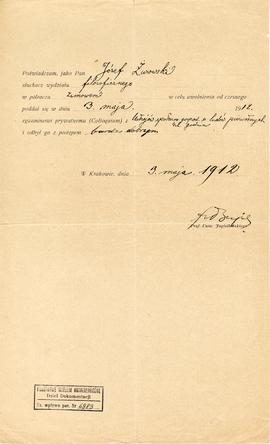 Poświadczam, jako Pan Józef Żurowski
słuchacz wydziału filozoficznego
w półroczu zimowem w celu uwolnienia od czesnego
poddał się w dniu 3. maja 1912.
egzaminowi prywatnemu (Colloquium) z
i odbył go z postępem bardzo dobrym
W Krakowie, dnia 3. maja 1912
Prof. Uniw. Jagiellońskiego
Dział Dokumentacji